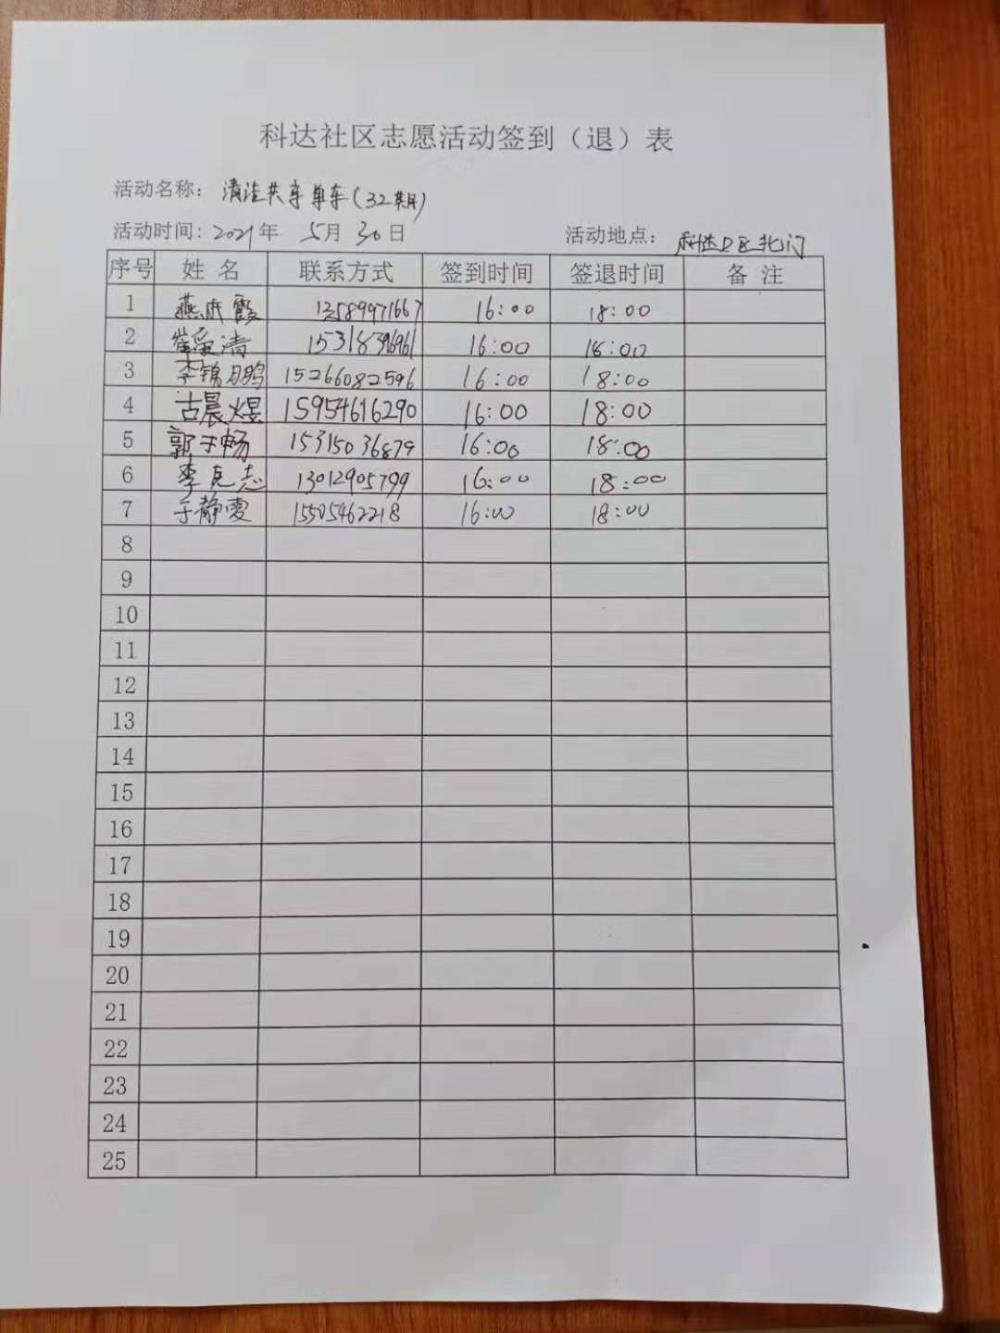 科达社区志愿活动签到（退）表
活动名称：清洁共享单车(32期)
活动时间：2021年 5月 30日 活动地点：科达D区北门
序号 姓名 联系方式 签到时间 签退时间 备注
1 燕庆霞 13589971667 16:00 18:00
2 清 15318396961 16:00 18:00
3 李锦鹏 15266082596 16:00 18:00
4 古晨煜 15954616290 16:00 18:00
5 郭子畅 15315036879 16:00 18:00
6 李克志 13012905799 16:00 18:00
7 于静雯 15505462218 16:00 18:00
8
9
10
11
12
13
14
15
16
17
18
19
20
21
22
23
24
25